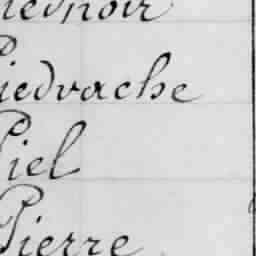 Piednoir
Piedvache
Piel
Pierre